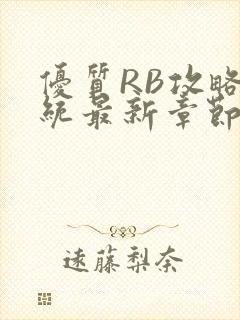 優質RB攻略
統最新章節
遠藤梨奈